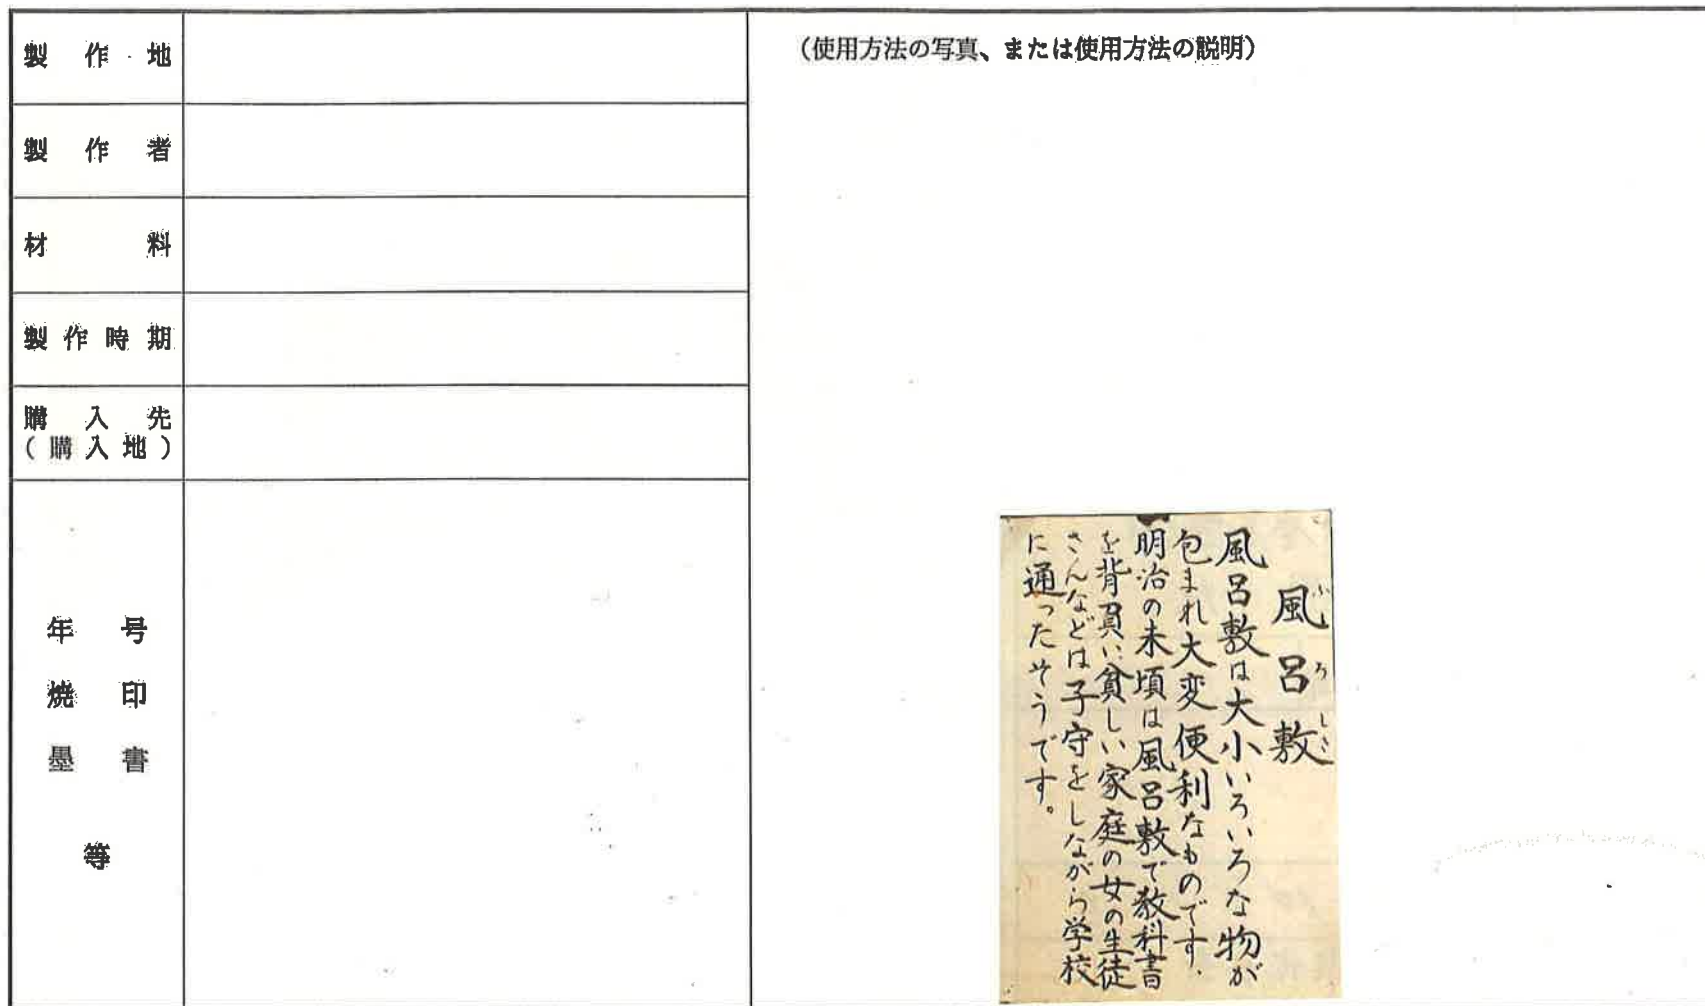 製作地
製作者
材料
製作時期
購入先
(購入地)
年号
焼印
墨書
等
(使用方法の写真、または使用方法の説明)
風呂敷
ふろしき
風呂敷は大小いろいろな物が
包まれ大変便利なものです、
明治の末頃は風呂敷で教科書
を背負い貧しい家庭の女の生徒
さんなどは子守をしながら学校
に通ったそうです。